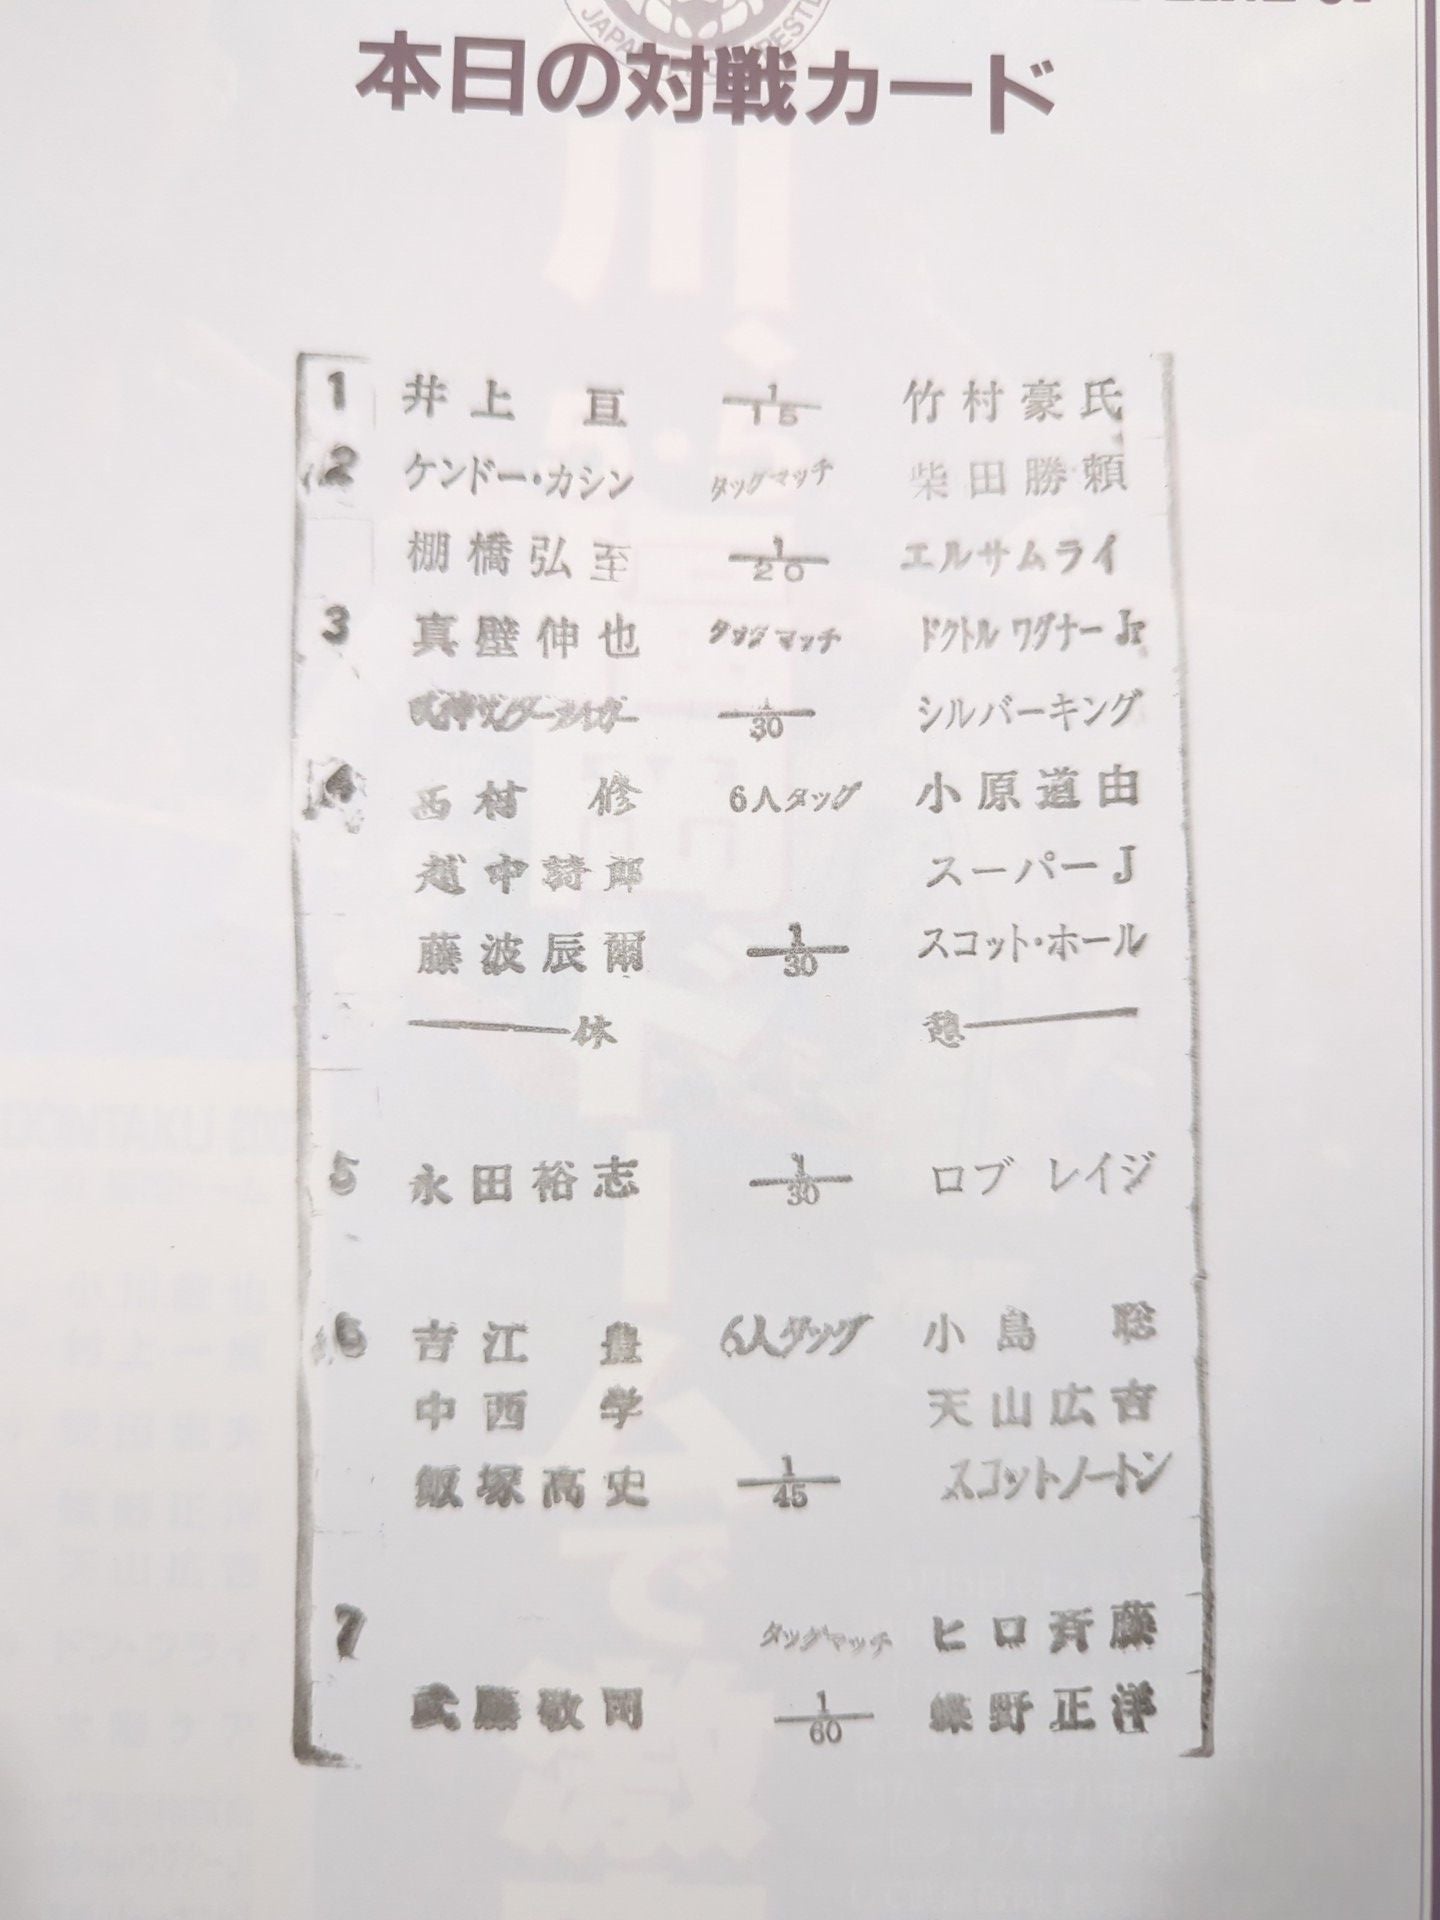 本日の対戦カード
1 井上 亘 1/15 竹村豪氏
2 ケンドー・カシン タッグマッチ 柴田勝頼
棚橋弘至 1/20 エルサムライ
3 真壁伸也 タッグマッチ ドクトル ワグナー Jr
獣神サンダーライガー 1/30 シルバーキング
4 西村 修 6人タッグ 小原道由
越中詩郎 スーパーJ
藤波辰爾 1/30 スコット・ホール
休 憩
5 永田裕志 1/30 ロブ レイジ
6 吉江 豊 6人タッグ 小島 聡
中西 学 天山広吉
飯塚高史 1/45 スコットノートン
7 タッグマッチ ヒロ斉藤
武藤敬司 1/60 蝶野正洋